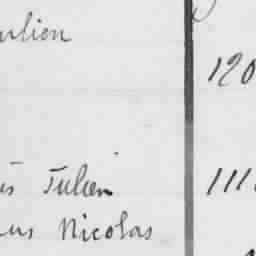 ulien
120
us Julien 111
us Nicolas